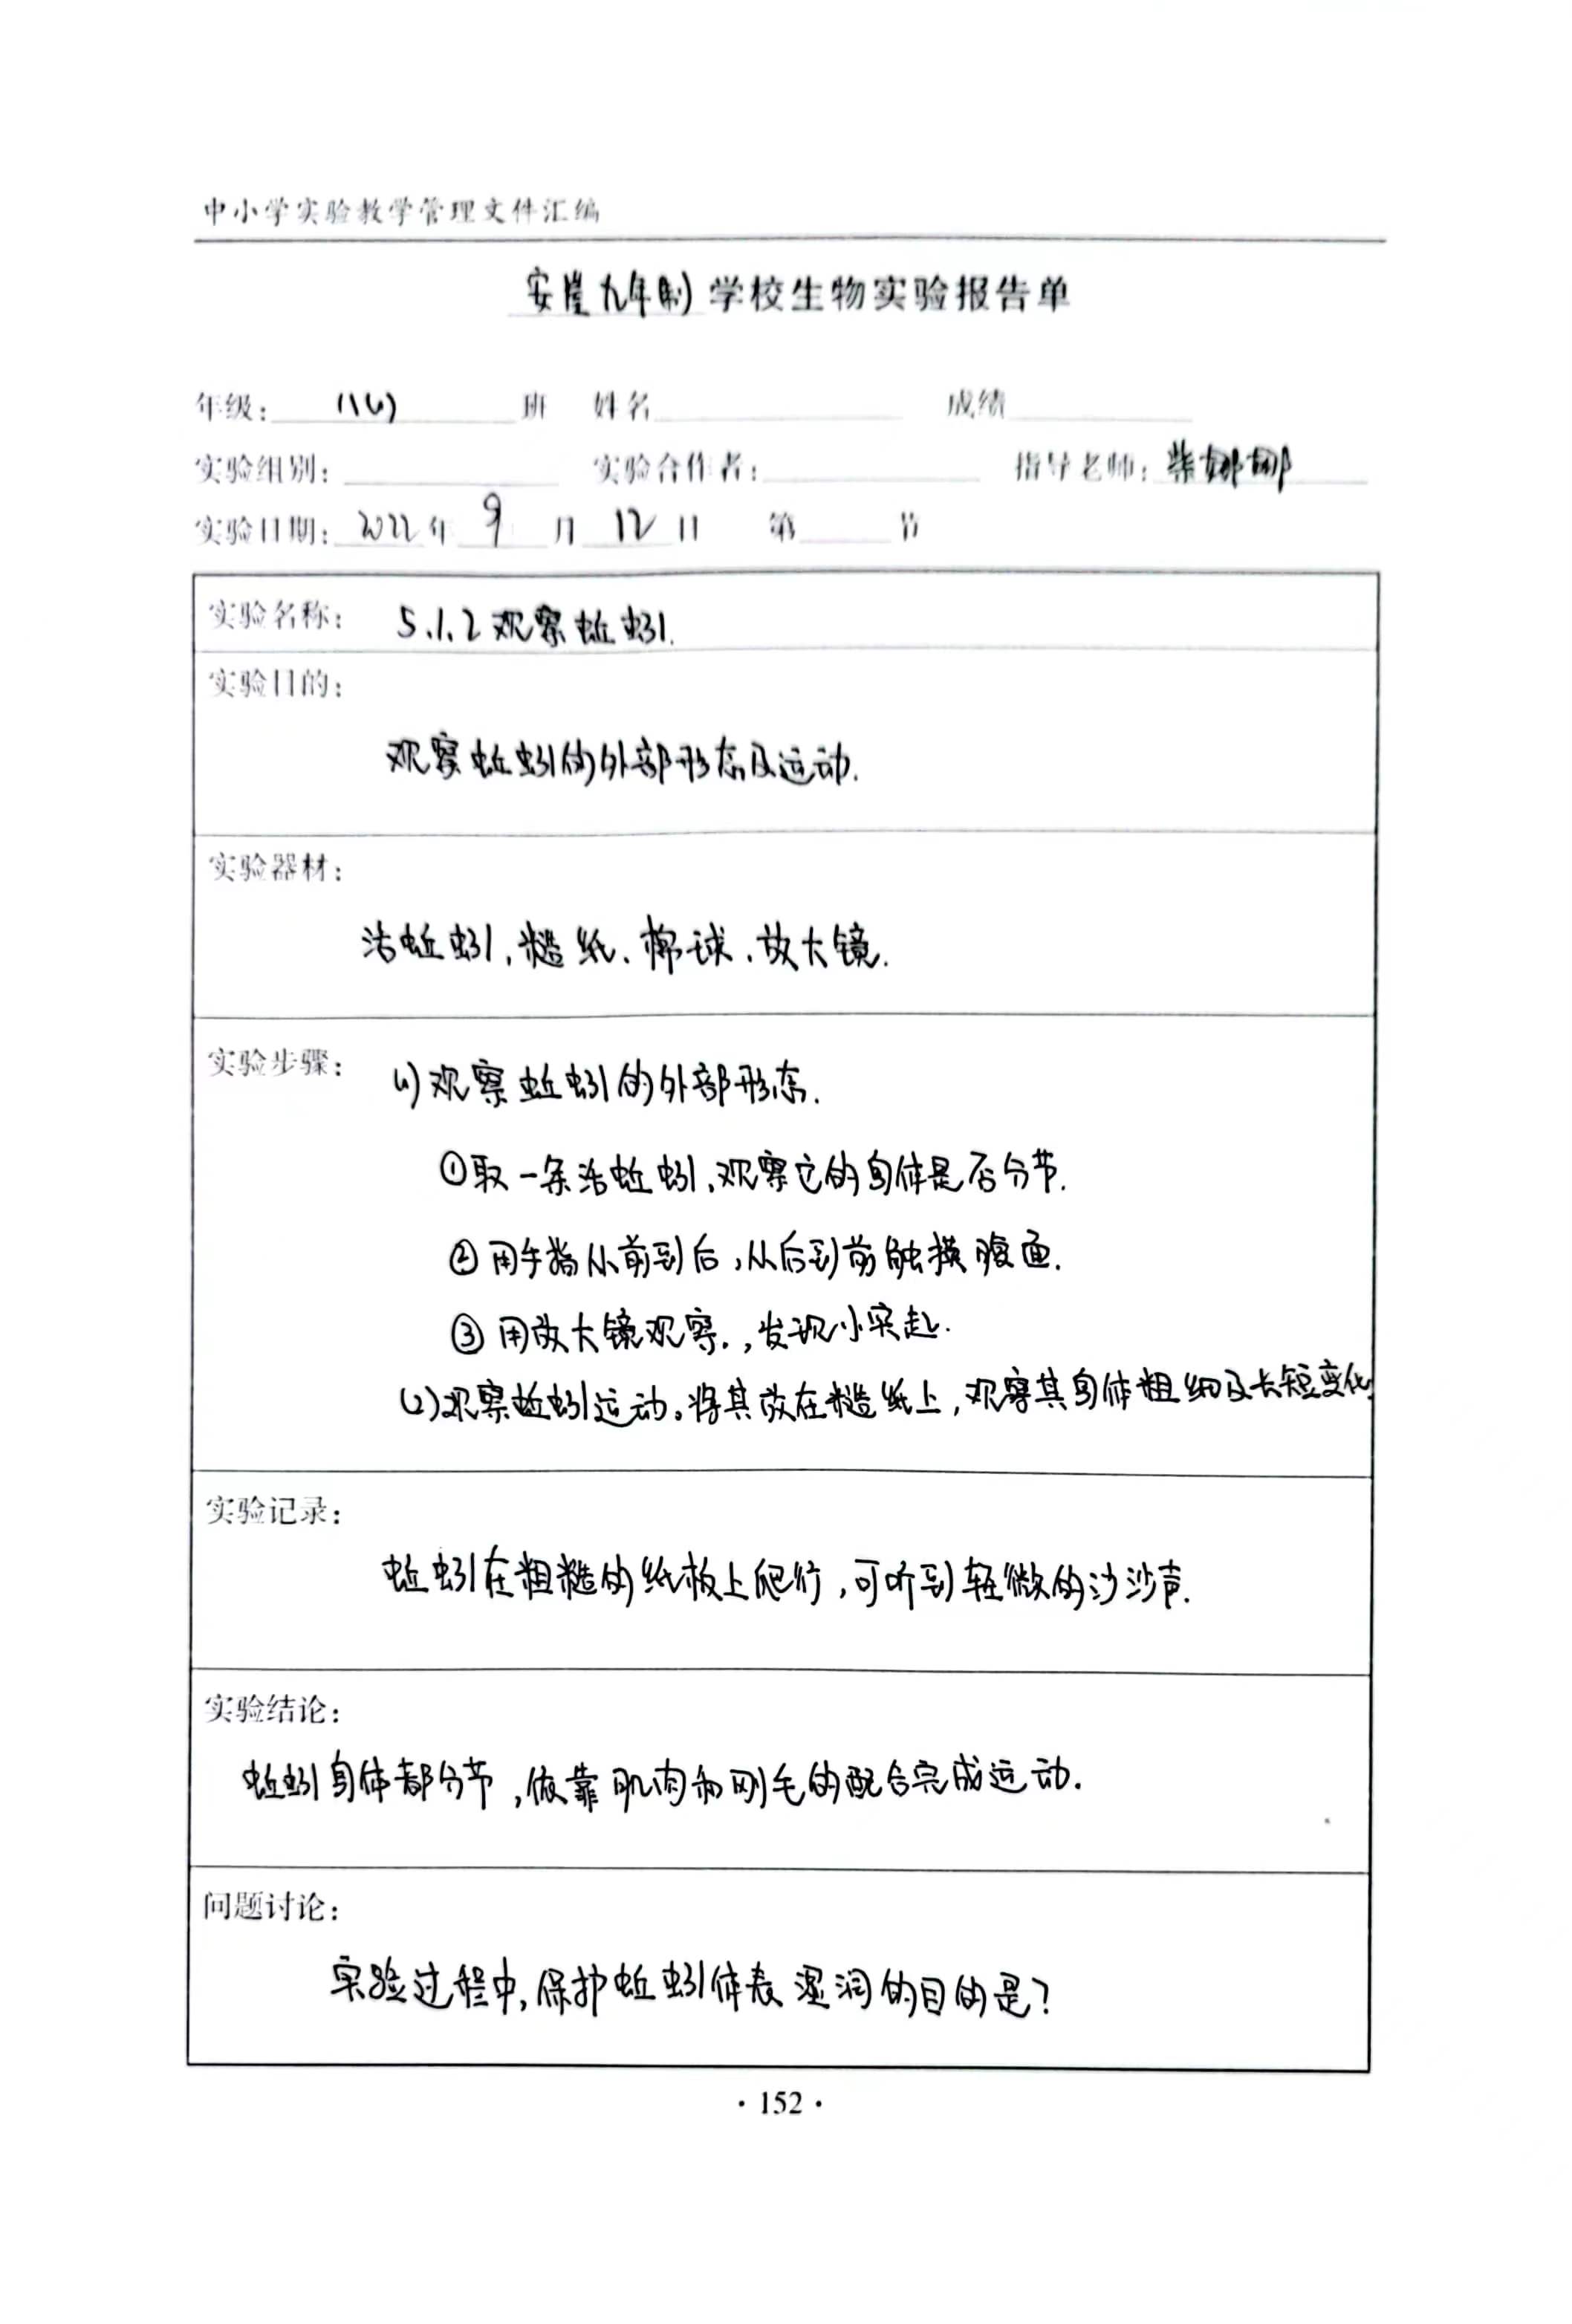 中小学实验教学管理文件汇编
安崖九年制学校生物实验报告单
年级: 班 姓名 成绩
实验组别: 实验合作者: 指导老师: 柴娜娜
实验日期: 2022年 9 月 12 日 第 节
实验名称: 5.1.2观察蚯蚓.
实验目的:
观察蚯蚓的外部形态及运动.
实验器材:
活蚯蚓,糙纸、棉球、放大镜.
实验步骤: (1)观察蚯蚓的外部形态.
①取一条活蚯蚓,观察它的身体是否分节.
②用手指从前到后,从后到前触摸腹面.
③用放大镜观察.,发现小突起.
(2)观察蚯蚓运动。将其放在糙纸上,观察其身体粗细及长短变化
实验记录:
蚯蚓在粗糙的纸板上爬行,可听到轻微的沙沙声.
实验结论:
蚯蚓身体都分节,依靠肌肉和刚毛的配合完成运动.
问题讨论:
实验过程中,保护蚯蚓体表湿润的目的是?
·152·